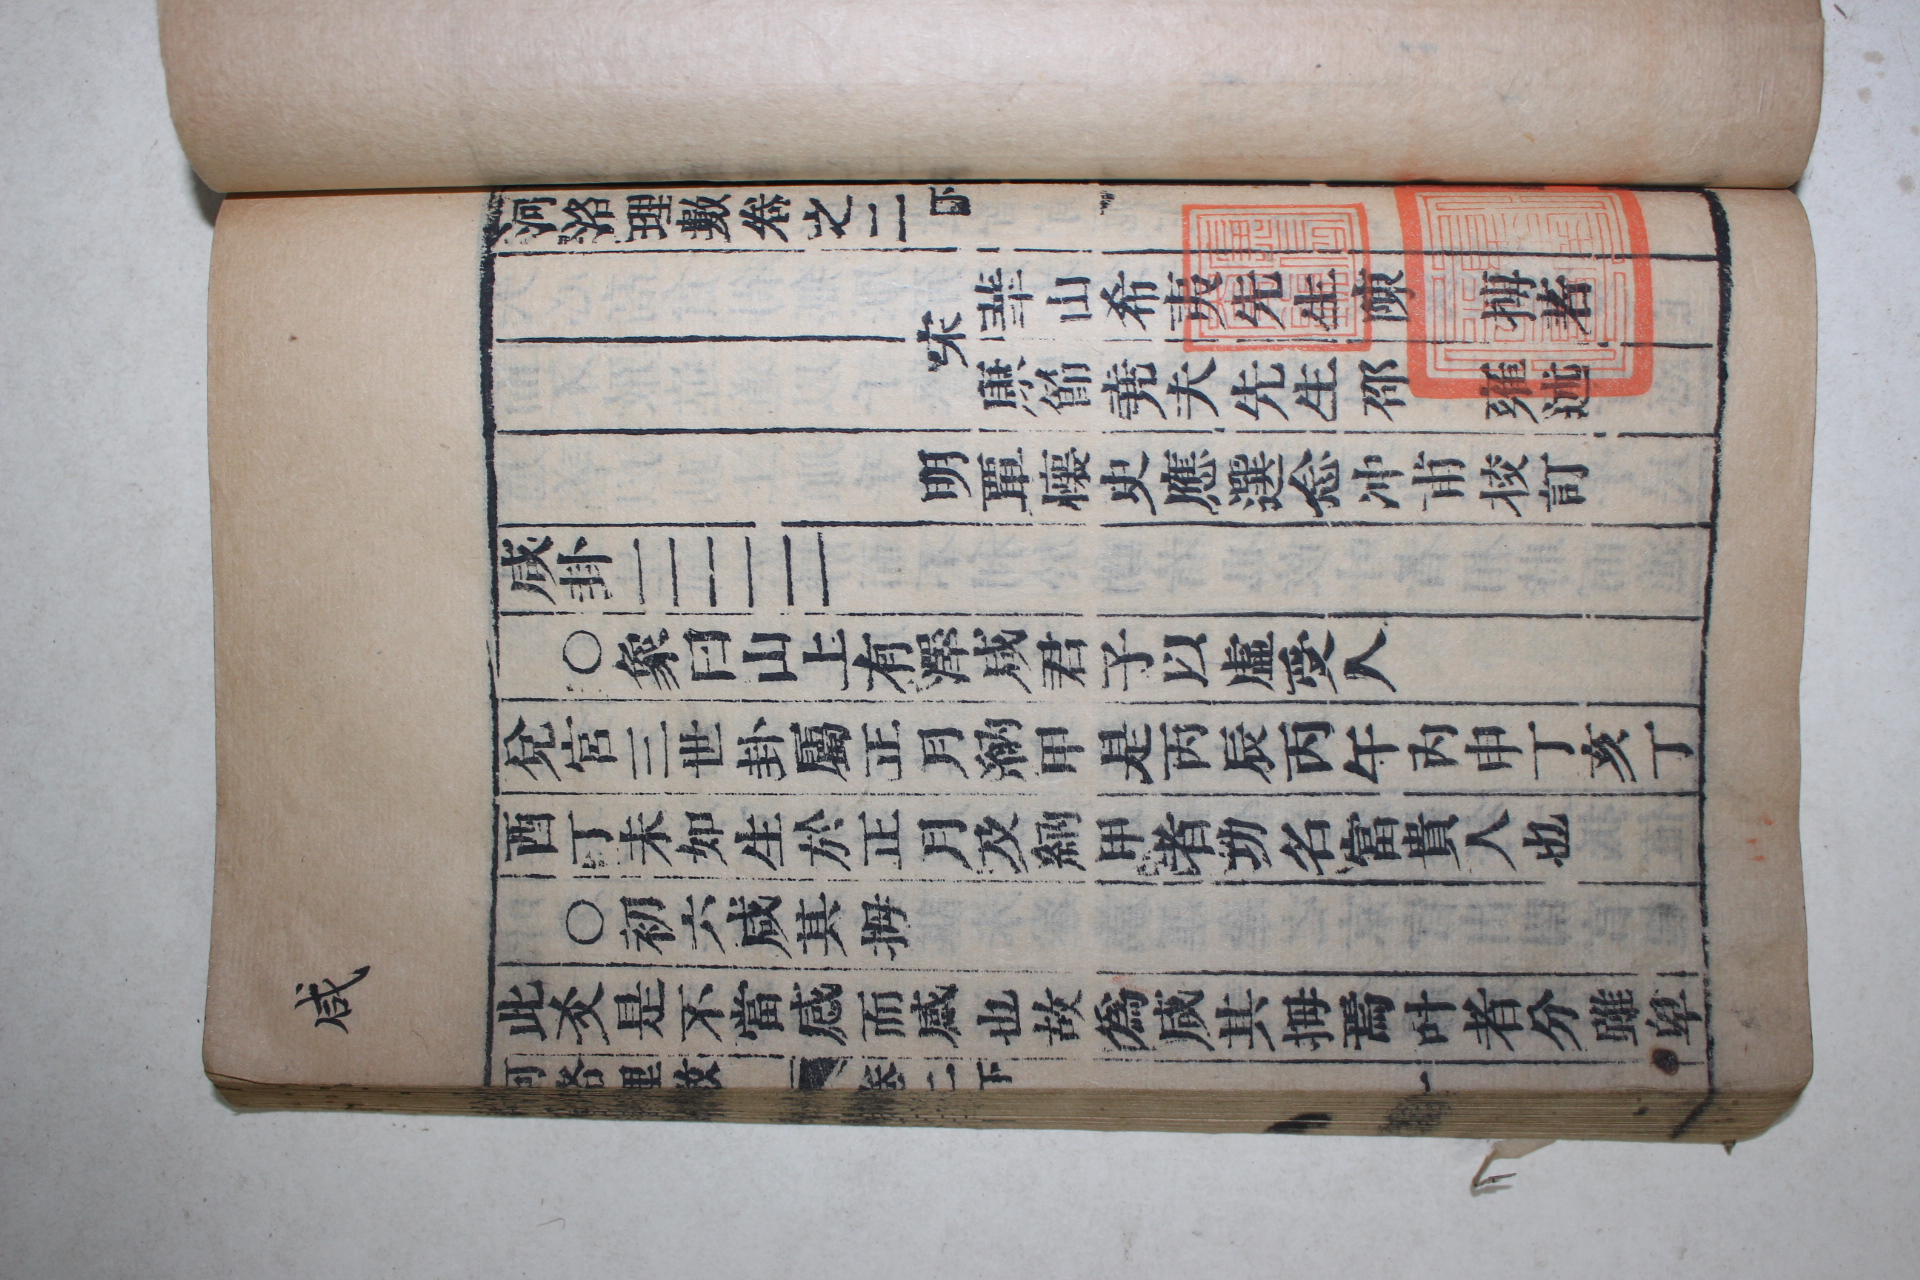 河洛理數卷之二下
宋 華山希夷先生陳 摶著
康節堯夫先生邵 雍述
明覃懷史應選念冲甫校訂
咸卦
○象曰山上有澤咸君子以虛受人
兌宮三世卦屬正月納甲是丙辰丙午丙申丁亥丁
酉丁未如生於正月及納甲者功名富貴人也
○初六咸其拇
此爻是不當感而感也故為咸其拇焉叶者分雖卑
河洛理數 卷二下 一
咸